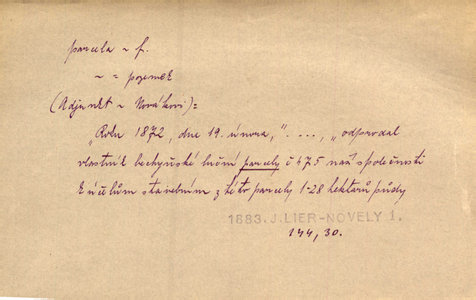 parcela ~ f.
~ = pozemek
(Adjunkt ~ Novákovi)=
"Roku 1872, dne 19. února," ...., "odprodal
vlastník bechyňské luční parcely č 475 naší společnosti
k účelům stavebním z této parcely 1·28 hektarů půdy
1883. J. LIER-NOVELY 1.
144, 30.